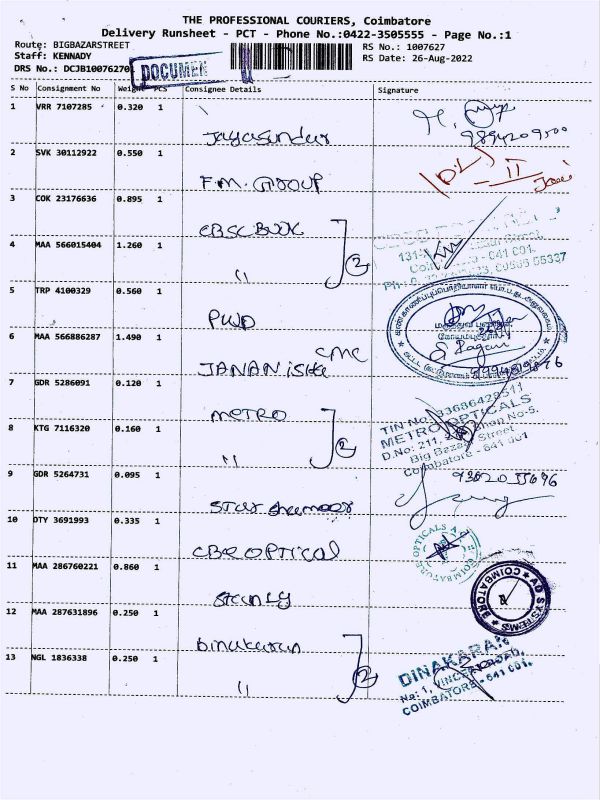 THE PROFESSIONAL COURIERS, Coimbatore
Delivery Runsheet - PCT - Phone No.:0422-3505555 - Page No.:1
Route: BIGBAZARSTREET RS No.: 1007627
Staff: KENNADY RS Date: 26-Aug-2022
DRS No.: DCJB10076270
DOCUMEN
S No Consignment No Weight PCS Consignee Details Signature
1 VRR 7107285 0.320 1
Jayasundar 9894209500
2 SVK 30112922 0.550 1
F.M. GROUP (D.L) II
3 COK 23176636 0.895 1
CBSC BOOK
4 MAA 566015404 1.260 1
" 2
641 001.
5 TRP 4100329 0.560 1
PWD
6 MAA 566886287 1.490 1
CMC
JANANI Ska
7 GDR 5286091 0.120 1
METRO
TIN No. 33686428511
METRO OPTICALS
8 KTG 7116320 0.160 1
" 2
D.No: 211, Shop No-5,
Big Bazaar Street
Coimbatore - 641 001
9 GDR 5264731 0.095 1
Star
10 DTY 3691993 0.335 1
CBE OPTICAL
COIMBATORE OPTICALS
11 MAA 286760221 0.860 1
Stanly
AD SYSTEMS
COIMBATORE
12 MAA 287631896 0.250 1
Dinakaran
13 NGL 1836338 0.250 1
" 2
DINAKARAN
No: 1,
COIMBATORE - 641 001.